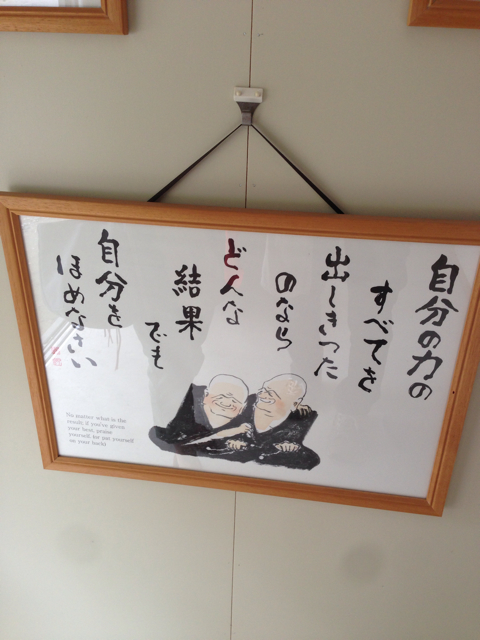 自分の力の
すべてを
出しきった
のなら
どんな
結果
でも
自分を
ほめなさい
No matter what is the
result, if you've given
your best, praise
yourself (or pat yourself
on your back)